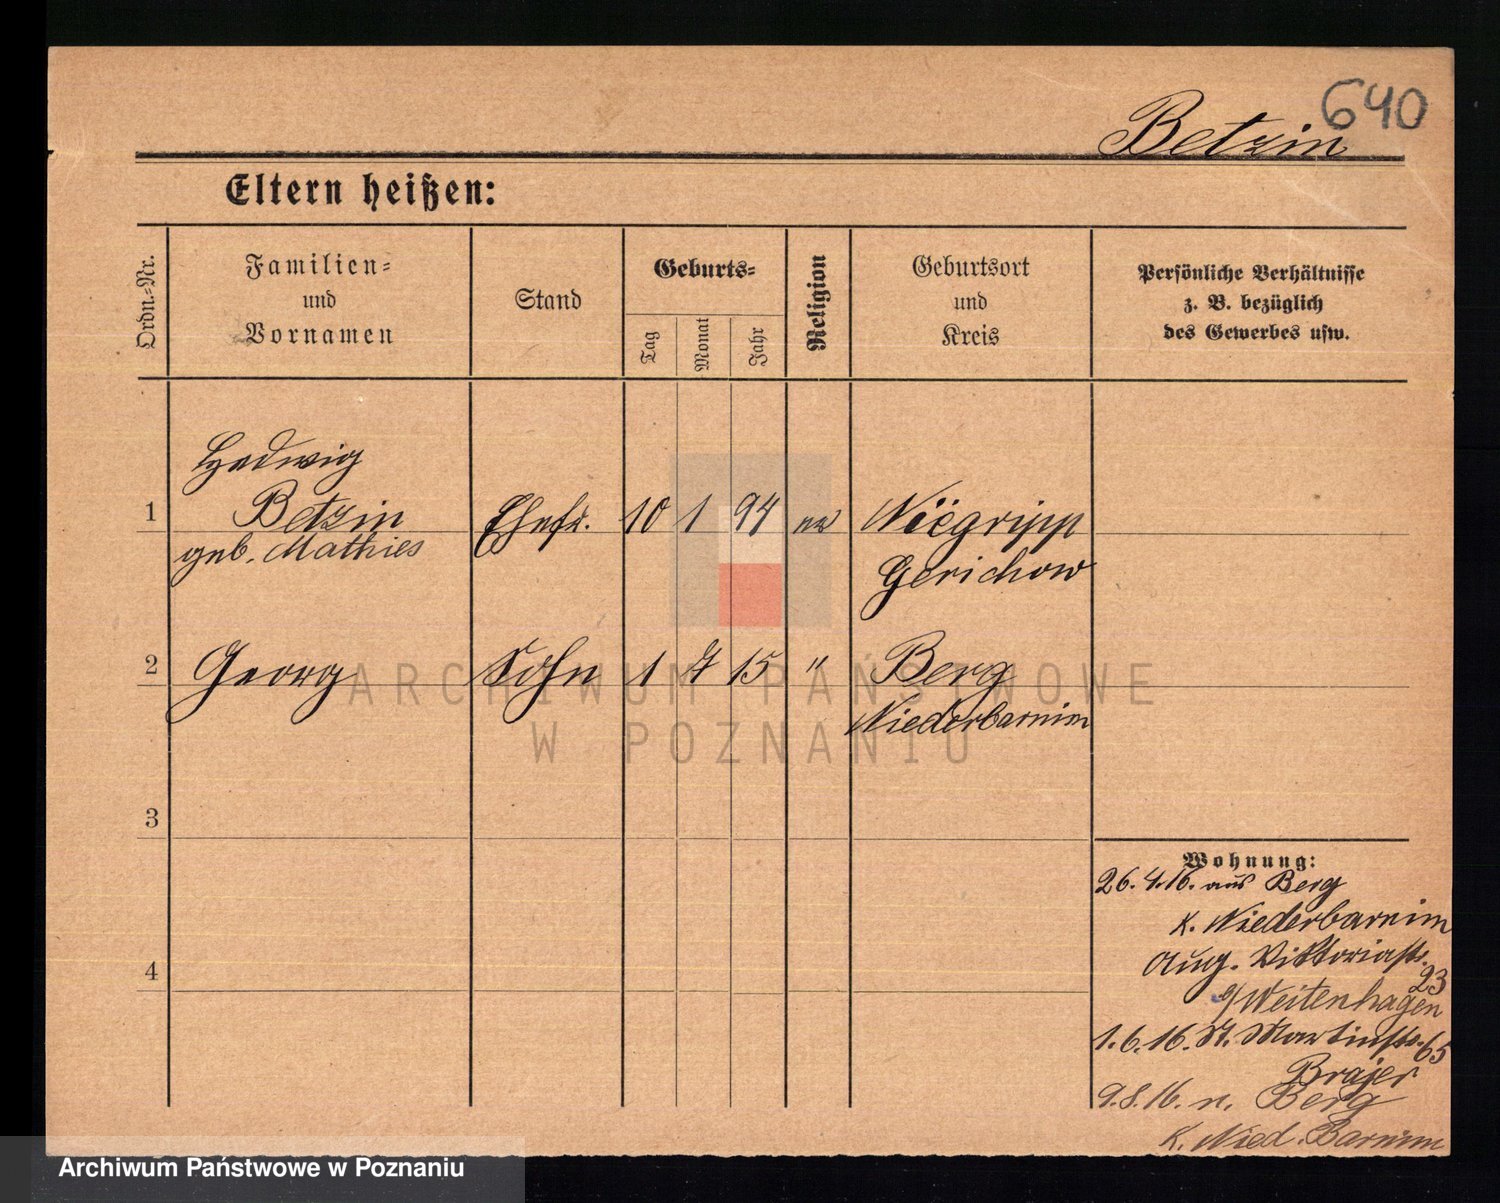 640
Betzin
Eltern heißen:
Ordn.=Nr.
Familien=
und
Vornamen
Stand
Geburts=
Tag
Monat
Jahr
Religion
Geburtsort
und
Kreis
Persönliche Verhältnisse
z. B. bezüglich
des Gewerbes usw.
Hedwig
1 Betzin Ehefr. 10 1 94 ev Niegripp
geb. Mathies
Gerichow
2 Georg Sohn 1 7 15 " Berg
Niederbarnim
3
4
Wohnung:
26.4.16. aus Berg
K. Niederbarnim
Aug. Viktoriastr.
23
b/ Weitenhagen
1.6.16. St. Martinstr. 65
Brajer
9.8.16. n. Berg
K. Nied. Barnim
ARCHIWUM PAŃSTWOWE
W POZNANIU
Archiwum Państwowe w Poznaniu